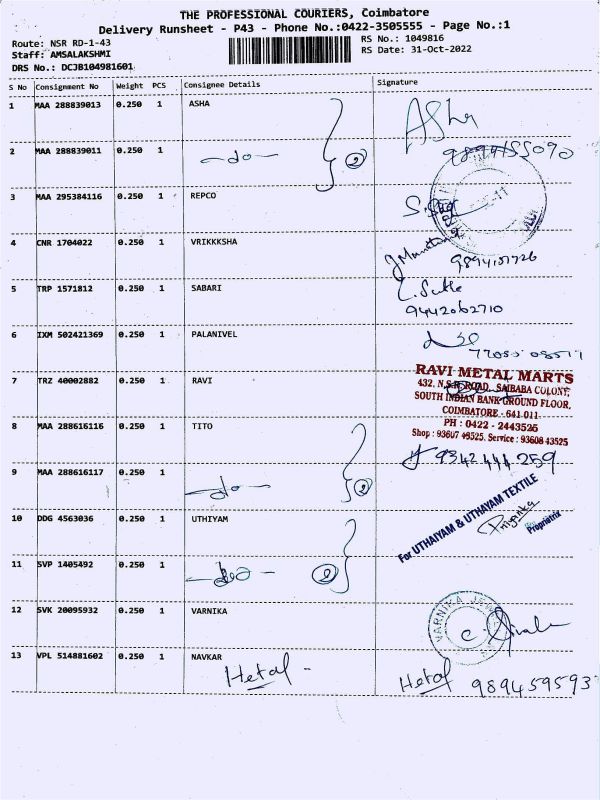 THE PROFESSIONAL COURIERS, Coimbatore
Delivery Runsheet - P43 - Phone No.:0422-3505555 - Page No.:1
Route: NSR RD-1-43
RS No.: 1049816
Staff: AMSALAKSHMI
RS Date: 31-Oct-2022
DRS No.: DCJB104981601
S No Consignment No Weight PCS Consignee Details Signature
1 MAA 288839013 0.250 1 ASHA Asha
2 MAA 288839011 0.250 1 -do- 2 9894155090
3 MAA 295384116 0.250 1 REPCO
4 CNR 1704022 0.250 1 VRIKKKSHA
9894151726
5 TRP 1571812 0.250 1 SABARI
9442062710
6 IXM 502421369 0.250 1 PALANIVEL
7 TRZ 40002882 0.250 1 RAVI
RAVI METAL MARTS
432, N.S.R. ROAD, SAIBABA COLONY,
SOUTH INDIAN BANK GROUND FLOOR,
COIMBATORE - 641 011
PH : 0422 - 2443525
Shop : 93607 43525. Service : 93608 43525
8 MAA 288616116 0.250 1 TITO
9342444259
9 MAA 288616117 0.250 1 -do- 2
10 DDG 4563036 0.250 1 UTHIYAM
For UTHAIYAM & UTHAYAM TEXTILE
Priyanka
Propriatrix
11 SVP 1405492 0.250 1 -do- 2
12 SVK 20095932 0.250 1 VARNIKA
VARNIKA
13 VPL 514881602 0.250 1 NAVKAR
Hetal - Hetal 9894595937